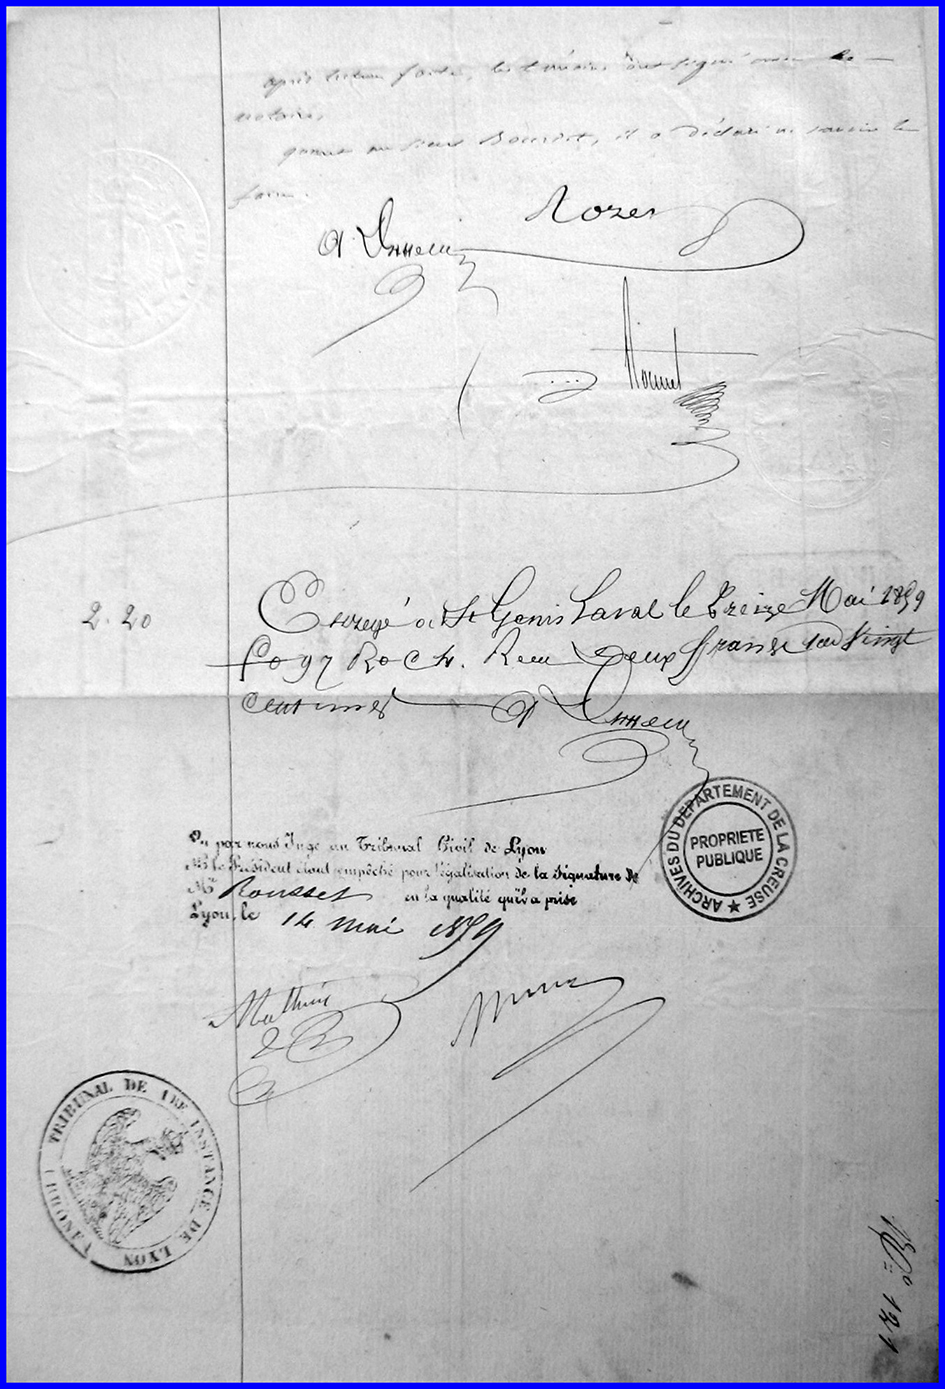 après lecture faite, les témoins ont signé avec le
notaire,
quant au sieur Bourdet, il a déclaré ne savoir le
faire.
Rozer
2.20
à St Genis Laval le treize Mai 1859
fo 97 Ro C Reçu Deux francs Vingt
Centimes
Vu par nous Juge au Tribunal Civil de Lyon
Mr le Président étant empêché pour légalisation de la Signature de
Mr Rousset en la qualité qu'il a prise
Lyon, le 14 mai 1859
Mathieu
ARCHIVES DU DÉPARTEMENT DE LA CREUSE
PROPRIETE
PUBLIQUE
TRIBUNAL DE 1RE INSTANCE DE LYON
(RHONE)